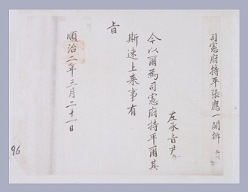 司憲府持平張應一開拆
左承旨尹
今以爾爲司憲府持平爾其
斯速上來事有
旨
順治二年三月二十一日
96